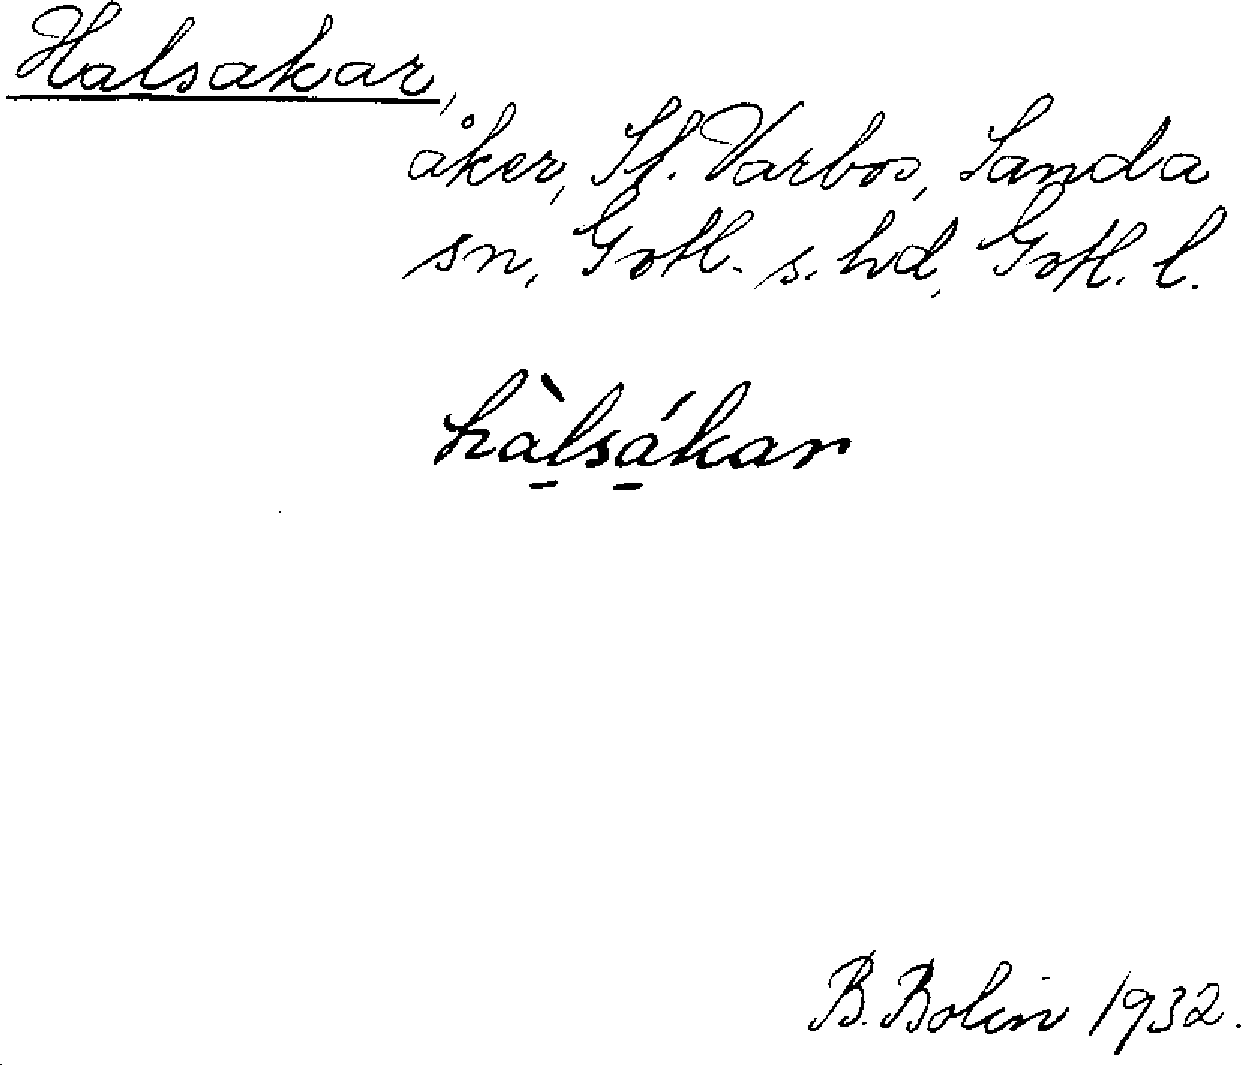 Halsakar,
åker, St. Varbos, Sanda
sn, Gotl. s. hd, Gotl. l.
hàlsákar
B. Bolin 1932.